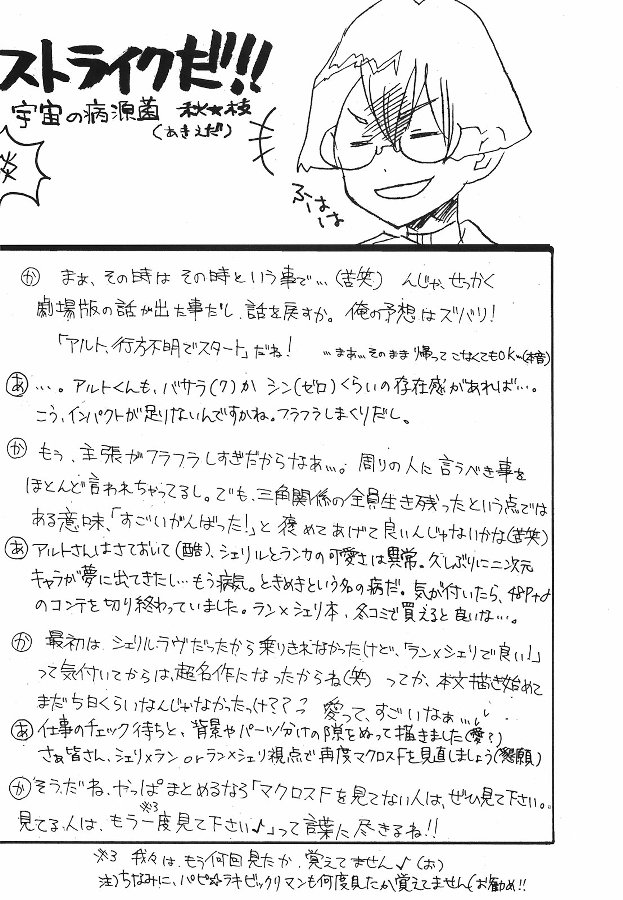 ストライクだ!!!
宇宙の病源菌 秋★枝
(あきえだ)
炎
ふーはは
はー
か まぁ、その時はその時という事で…(苦笑) んじゃ、せっかく
劇場版の話が出た事だし、話を戻すか。俺の予想はズバリ!
「アルト、行方不明でスタート」だね! …まあ…そのまま帰ってこなくてもOK…(本音)
あ …。アルトくんも、バサラ(7)か シン(ゼロ)くらいの存在感があれば…。
こう、インパクトが足りないんですかね。フラフラしまくりだし。
か もう、主張がフラフラしすぎだからなあ…。周りの人に言うべき事を
ほとんど言われちゃってるし。でも、三角関係の全員生き残ったという点では
ある意味、「すごいがんばった!」と褒めてあげて良いんじゃないかな(苦笑)
あ アルトさんはさておいて(酷)、シェリルとランカの可愛さは異常。久しぶりに二次元
キャラが夢に出てきたし…もう病気。ときめきという名の病だ。気が付いたら、48P+α
のコンテを切り終わっていました。ラン×シェリ本、冬コミで買えると良いな…。
か 最初は、シェリルラヴだったから乗りきれなかったけど、「ラン×シェリで良い!」
って気付いてからは、超名作になったからね(笑) ってか、本文描き始めて
まだ5日くらいなんじゃなかったっけ??? 愛って、すごいなぁ…
あ 仕事のチェック待ちと、背景やパーツ分けの隙をぬって描きました(愛?)
さぁ皆さん、シェリ×ラン or ラン×シェリ視点で再度マクロスFを見直しましょう(懇願)
か そうだね、やっぱまとめるなら「マクロスFを見てない人は、ぜひ見て下さい。
見てる人は、もう一度※3見て下さい♪」って言葉に尽きるね!!
※3 我々は、もう何回見たか、覚えてません♪(お)
注)ちなみに、パピ☆ラキビックリマンも何度見たか覚えてません(お勧め!!